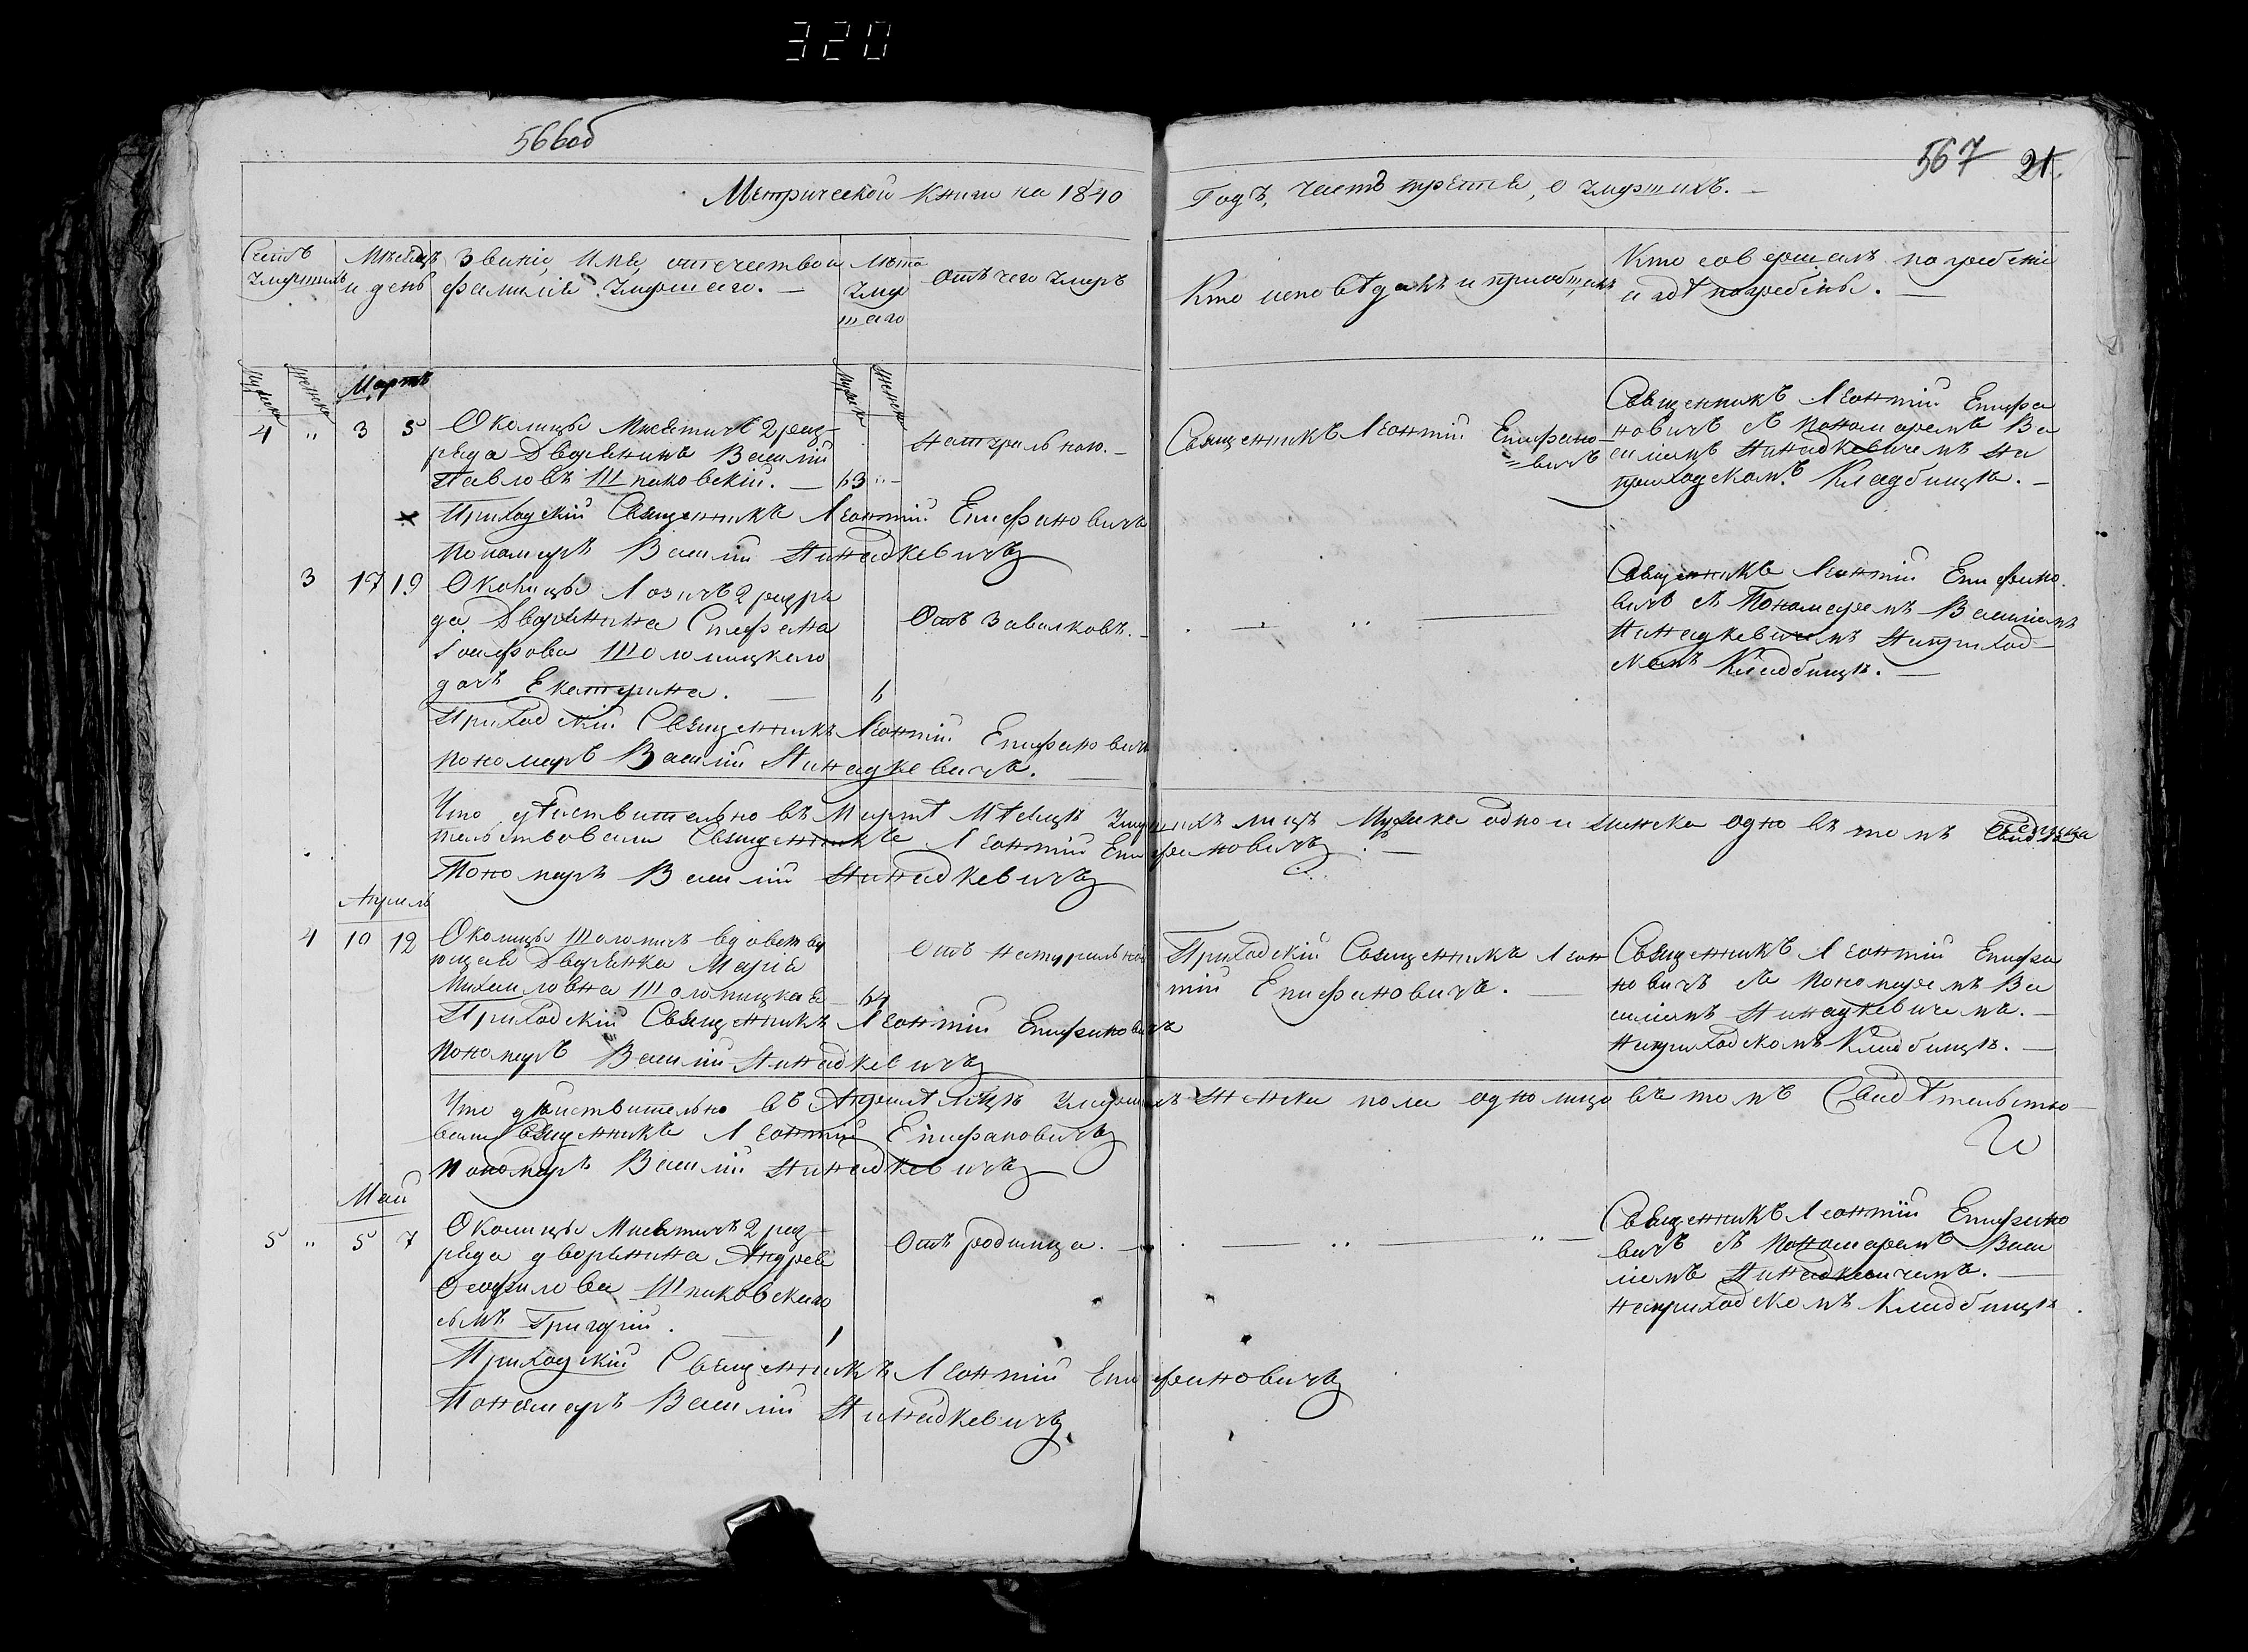 320
566об
567 21.
Метрической Книги на 1840
Годъ, часть третья, о умершихъ. —
Счетъ умершихъ
Мѣсяцъ и день
Званіе, Имя, отечество и
фамилія умершаго. —
Лѣта
умер
шаго
Отъ чего умеръ
Кто исповѣдалъ и пріобщалъ
Кто совершалъ погребеніе
и гдѣ погребены. —
Мужска
Женска
Мартъ
Мужска
Женска
4 " 3 5
Околицы Мисятичъ 2 раз-
ряда Дворянинъ Василій
Павловъ Шпаковскій. — 63 "
Натуральною. —
Священникъ Леонтій Епифано-
=вичъ
Священникъ Леонтій Епифа
новичъ съ Пономаремъ Ва
силіемъ на
приходскомъ Кладбищѣ. —
Приходскій Священникъ Леонтій Епифановичъ
Пономаръ Василій
3 17 19
Околицы 2 разря
да Дворянина Стефана
Іосифова Шоломицкаго
дочь Екатерина. — 6
Отъ Завалковъ. —
Священникъ Леонтій Епифано
вичъ съ Пономаремъ Василіемъ
наприход-
скомъ Кладбищѣ. —
Приходскій Священникъ Леонтій Епифановичъ
Пономаръ Василій
Что дѣйствительно въ Мартѣ Мѣсяцѣ умершихъ лицъ Мужска одно и женска одно въ томъ
тельствовали Священникъ Леонтій Епифановичъ
Пономаръ Василій
Апрель
4 10 12
Околицы вдовству
ющая Дворянка Марія
Михайловна Шоломицкая — 64
Отъ натуральной
Приходскій Священникъ Леон
тій Епифановичъ. —
Священникъ Леонтій Епифа
новичъ съ Пономаремъ Ва
силіемъ
наприходскомъ Кладбищѣ. —
Приходскій Священникъ Леонтій Епифановичъ
Пономаръ Василій
Что дѣйствительно въ Апрелѣ умершихъ Женска пола одно лицо въ томъ Свидѣтельство-
вали Священникъ Леонтій Епифановичъ
Пономаръ Василій
Май
5 " 5 7
Околицы Мисятичъ 2 раз-
ряда дворянина Андрея
Ѳеофилова Шпаковскаго
сынъ Григорій. — 1
Отъ родимца. —
Священникъ Леонтій Епифано
вичъ съ Пономаремъ Васи
ліемъ
наприходскомъ Кладбищѣ.
Приходскій Священникъ Леонтій Епифановичъ
Пономаръ Василій